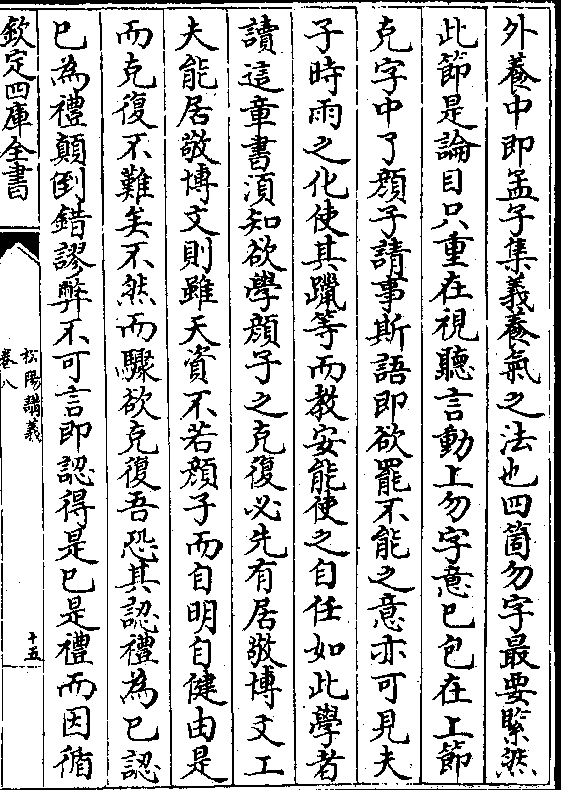 外養中即孟子集義養氣之法也四箇勿字最要緊然
此節是論目只重在視聽言動上勿字意已包在上節
克字中了顔子請事斯語即欲罷不能之意亦可見夫
子時雨之化使其躐等而教安能使之自任如此學者
讀這章書須知欲學顔子之克復必先有居敬博文工
夫能居敬博文則雖天資不若顔子而自明自健由是
而克復不難矣不然而驟欲克復吾恐其認禮為已認
已為禮顛倒錯謬弊不可言即認得是已是禮而因循
欽定四庫全書
松陽講義
卷八
十五